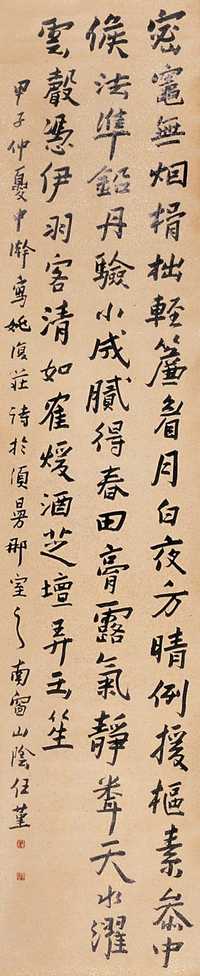 密竈無烟榾柮輕簾看月白夜方晴例援樞素叅中
候法準鉛丹驗小成膩得春田膏露氣靜弄天水濯
雲縠憑伊羽客清如雀煖酒芝壇弄玉笙
甲子仲夏中澣寫姚復莊詩於須曼那室之南窗山陰任堇